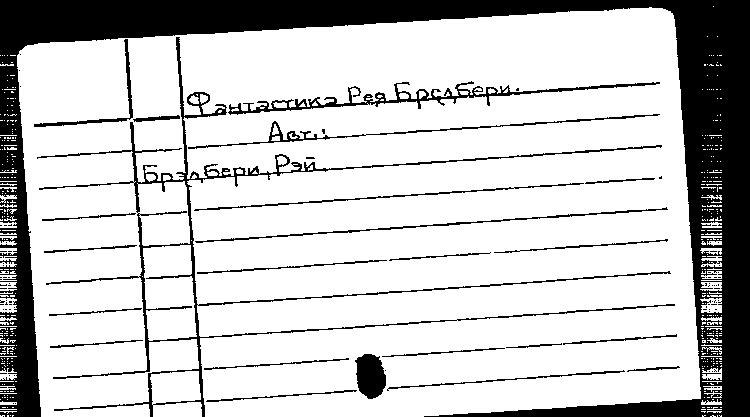 Фантастика Рея Брэдбери.
Авт.:
Брэдбери, Рэй.